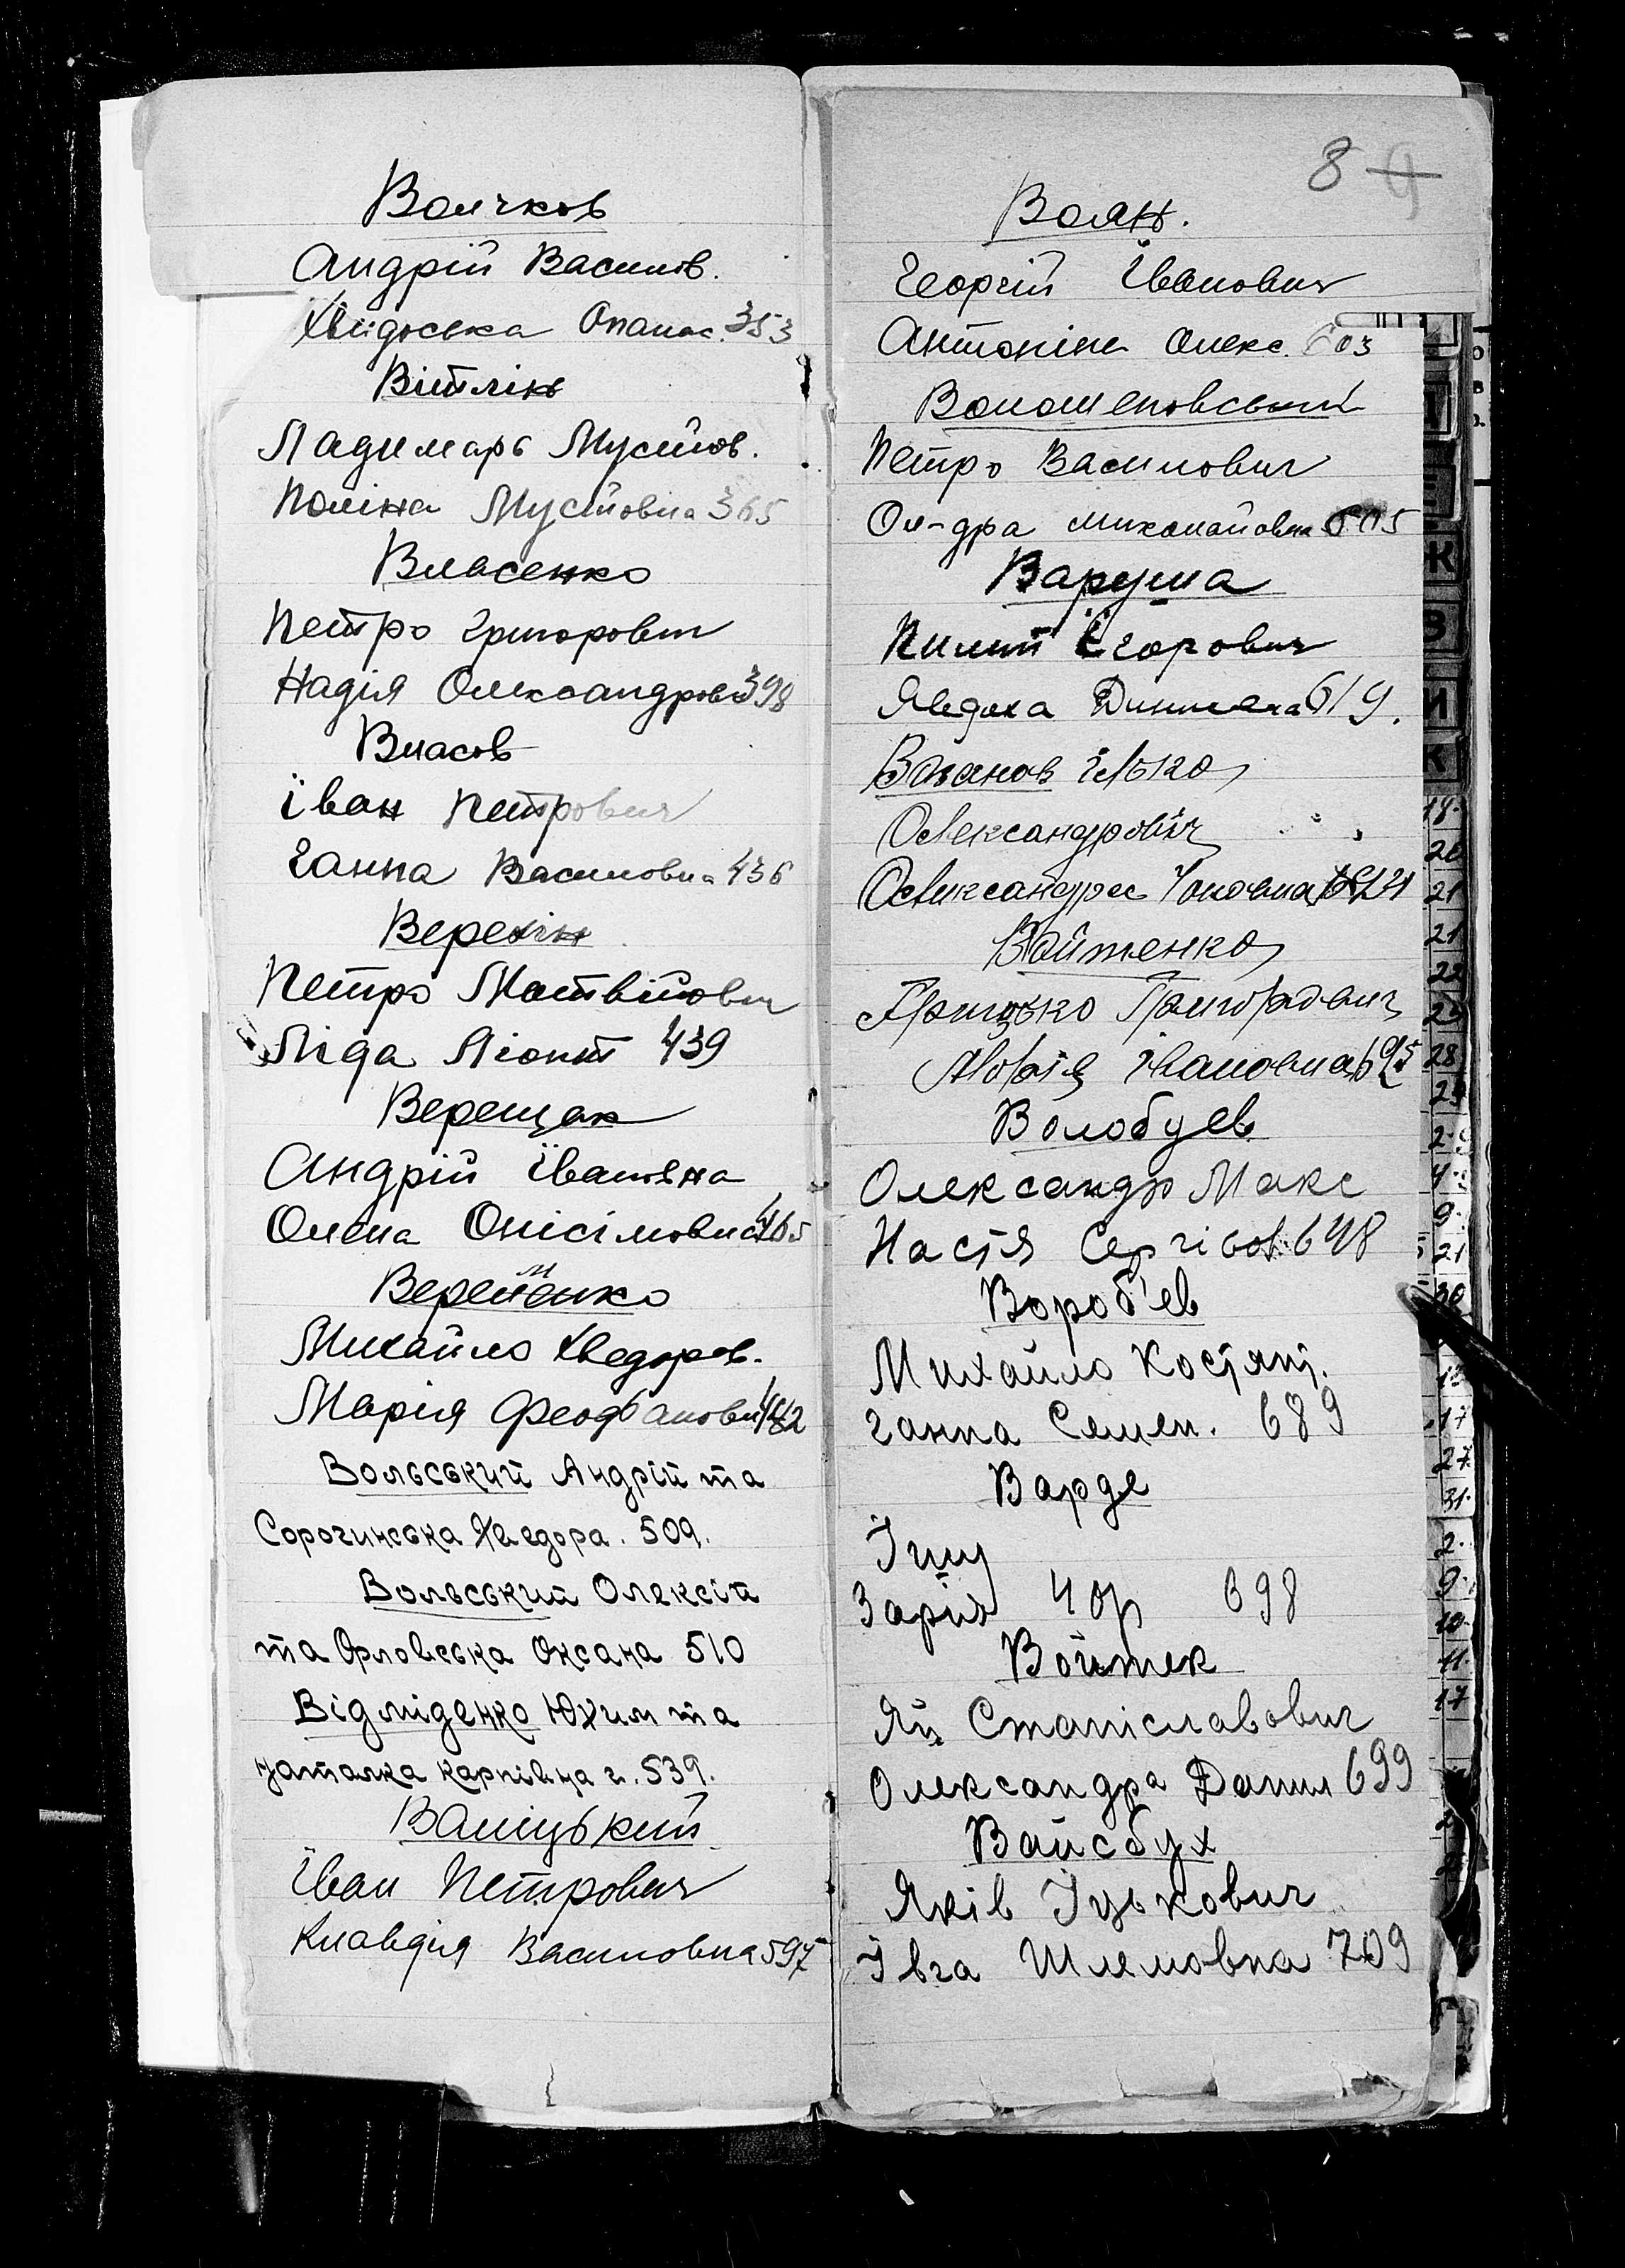 Волчков
Андрій Васильов.
Хвидоська Опанас. 353
Вітлінь
Ладимарь Мусійов.
Поліна Мусійовна 365
Власенко
Петро Григорович
Надія Олександровн 398
Власов
Їван Петрович
Ганна Василовна 436
Верехін
Петро Матвійович
Ліда Ліонт 439
Верещак
Андрій Їванівна
Олена Онісімовна 465
Веременко
Михайло Хведоров.
Марія Феодбановн 482
Вольський Андрій та
Сорочинська Хведора. 509.
Вольський Олексій
та Орловська Оксана 510
Відміденко Юхим та
наталка карпівна г. 539.
Валіцький
Їван Петрович
Клавдія Василовна 597
8 9
Воян.
Георгій Їванович
Антоніна Олекс. 603
Волошеновський
Петро Василович
Ол-дра Миколайовна 605
Варуша
Пилип Єгорович
Явдоха 619.
Вжанов Ілько
Олександрович
Олександра 621
Войтенко
Грицько Григорович
Марія Івановна 625
Волобуев
Олександр Макс
Настя Сергієв. 648
Вороб'ев
Михайло Костянт.
Ганна Семен. 689
Варде
Їцц
Зарія Чор 698
Войтек
Ян Станіславович
Олександра Данил 699
Вайсбух
Яків Їцькович
Ївга Шлемовна 709